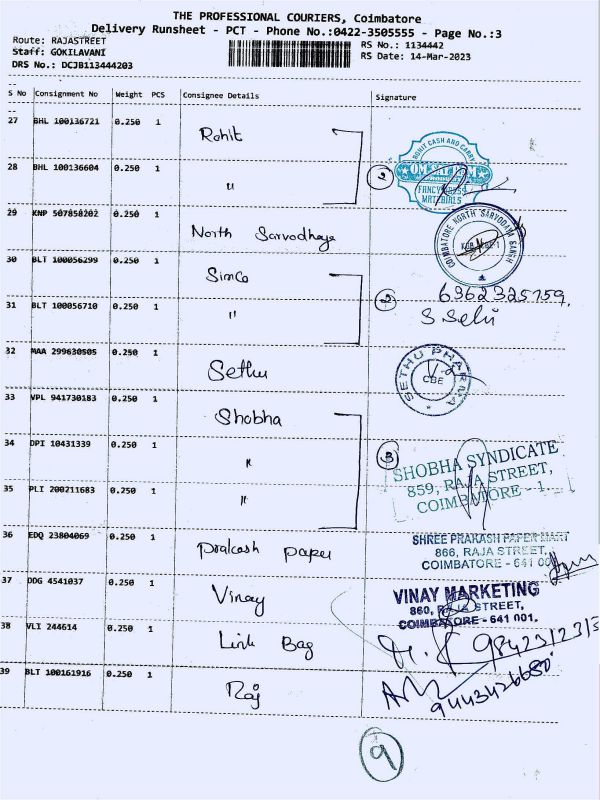 THE PROFESSIONAL COURIERS, Coimbatore
Delivery Runsheet - PCT - Phone No.:0422-3505555 - Page No.:3
Route: RAJASTREET
Staff: GOKILAVANI
DRS No.: DCJB113444203
RS No.: 1134442
RS Date: 14-Mar-2023
S No Consignment No Weight PCS Consignee Details Signature
27 BHL 100136721 0.250 1 Rohit
28 BHL 100136604 0.250 1 "
2
ROHIT CASH AND CARRY
FANCY DRESS
MATERIALS
29 KNP 507858202 0.250 1 North Sarvodhaya
COIMBATORE NORTH SARVODAYA SANGH
30 BLT 100056299 0.250 1 Simco
6362325759.
31 BLT 100056710 0.250 1 "
2
S Selvi
32 MAA 299630505 0.250 1 Sethu
SETHU PHARMA
CBE
33 VPL 941730183 0.250 1 Shobha
34 DPI 10431339 0.250 1 "
3
SHOBHA SYNDICATE
859, RAJA STREET,
COIMBATORE - 1.
35 PLI 200211683 0.250 1 "
36 EDQ 23804069 0.250 1 Prakash paper
SHREE PRAKASH PAPER MART
866, RAJA STREET,
COIMBATORE - 641 001
37 DDG 4541037 0.250 1 Vinay
VINAY MARKETING
860, RAJA STREET,
COIMBATORE - 641 001.
38 VLI 244614 0.250 1 Link Bag
39 BLT 100161916 0.250 1 Raj
9443426680
9